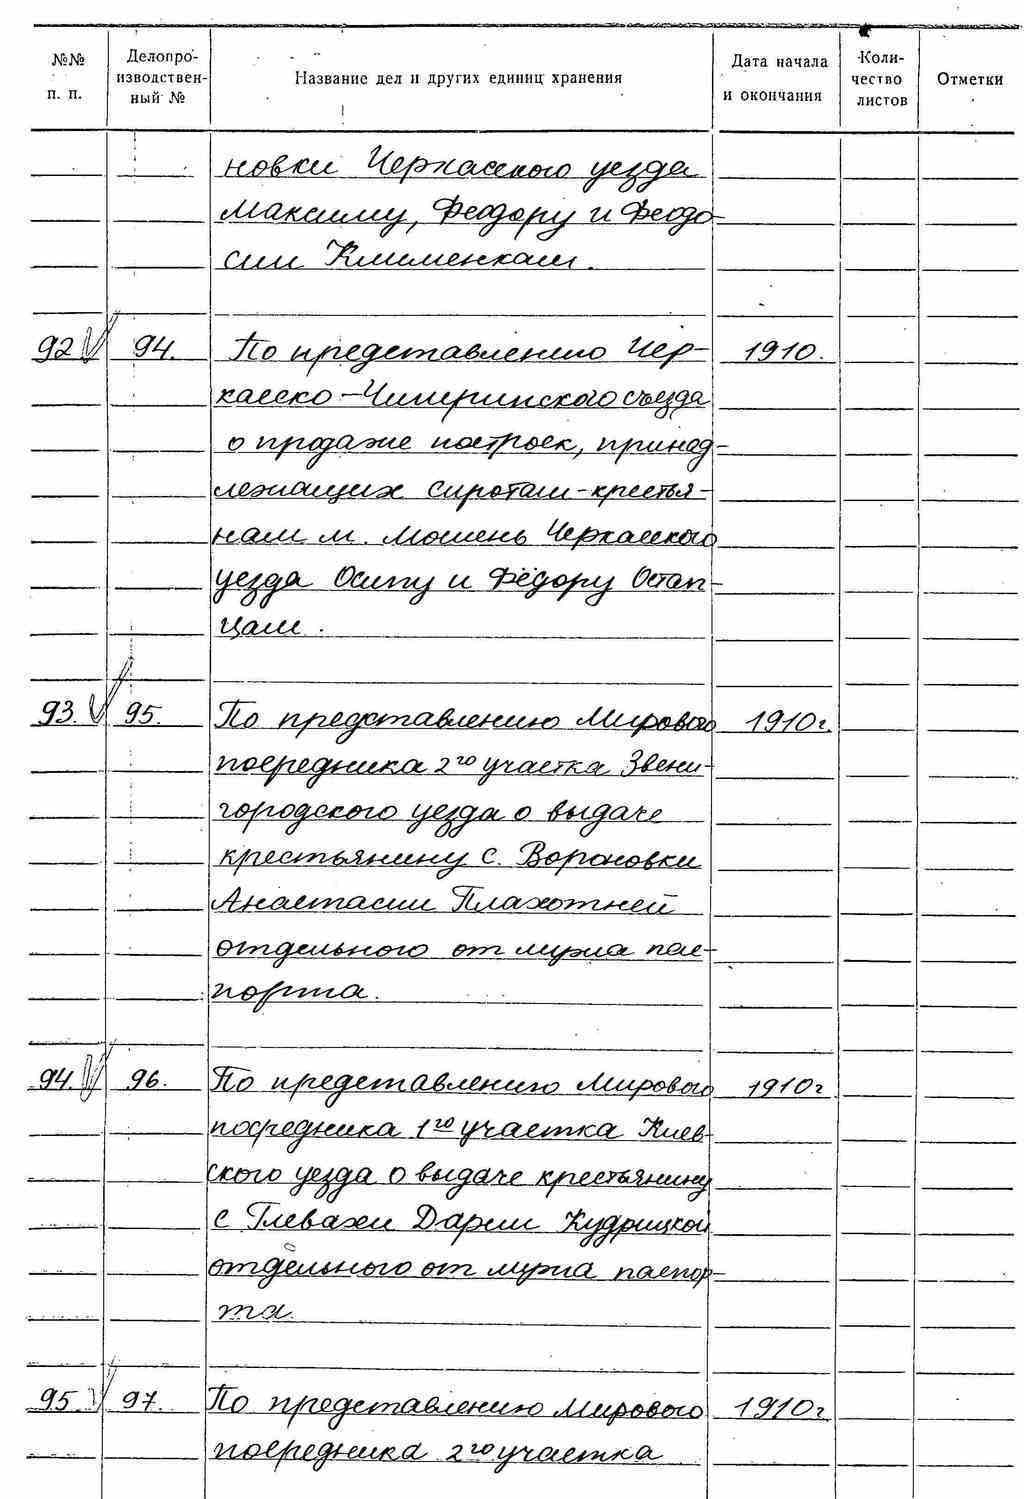 №№ п. п.
Делопроизводственный №
Название дел и других единиц хранения
Дата начала и окончания
Количество листов
Отметки
новки Черкасского уезда
Максиму, Феодору и Феодо-
сии Клименкам.
92 94. По представлению Чер- 1910.
касско-Чигиринского съезда
о продаже построек, принад-
лежащих сиротам-крестья-
нам м. Мошень Черкасского
уезда Осипу и Фёдору Остап-
цам.
93. 95. По представлению Мирового 1910г.
посредника 2го участка Звени-
городского уезда о выдаче
крестьянину с. Вороновки
Анастасии Плахотней
отдельного от мужа пас-
порта.
94. 96. По представлению Мирового 1910г
посредника 1го участка Киев-
ского уезда о выдаче крестьянину
с Глевахи Дарии Кудрицкой
отдельного от мужа паспор-
та.
95 97. По представлению Мирового 1910г
посредника 2го участка